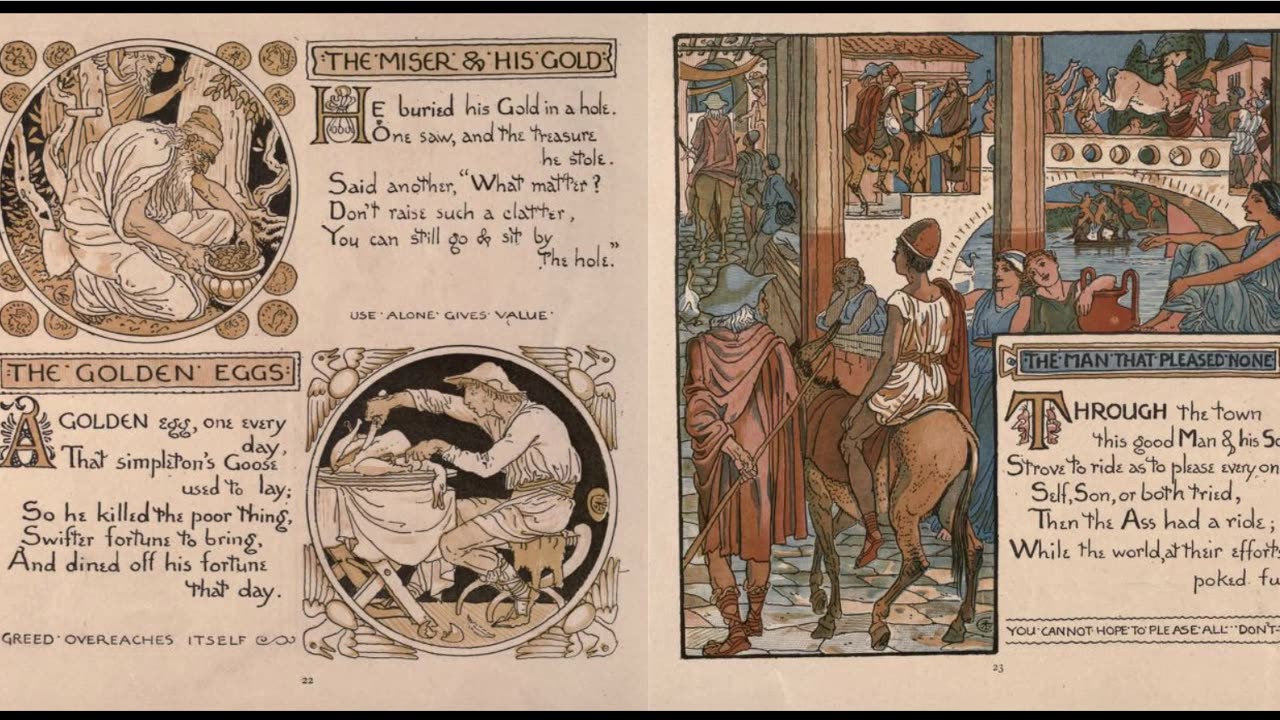 THE MISER & HIS GOLD
HE buried his Gold in a hole.
One saw, and the treasure
he stole.
Said another, "What matter?
Don't raise such a clatter,
You can still go & sit by
the hole."
USE ALONE GIVES VALUE
THE GOLDEN EGGS
A GOLDEN egg, one every
day,
That simpleton's Goose
used to lay;
So he killed the poor thing,
Swifter fortune to bring,
And dined off his fortune
that day.
GREED OVEREACHES ITSELF
22
THE MAN THAT PLEASED NONE
THROUGH the town
this good Man & his
Strove to ride as to please every
Self, Son, or both tried,
Then the Ass had a ride;
While the world, at their
poked
YOU CANNOT HOPE TO PLEASE ALL DON'T
23